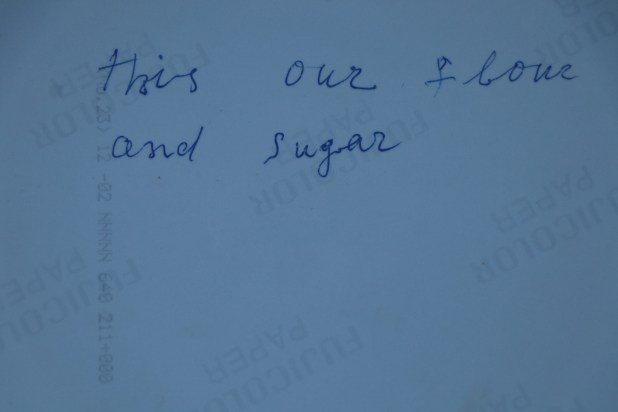 this our flour
and sugar
FUJICOLOR
PAPER
FUJICOLOR
PAPER
FUJICOLOR
PAPER
FUJICOLOR
PAPER
FUJICOLOR
PAPER
12 -02 NNNNN